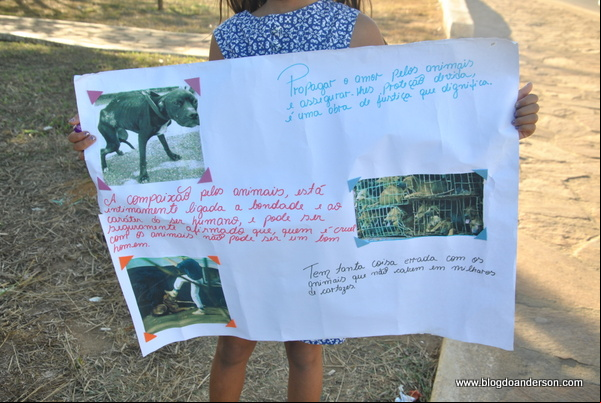 Propagar o amor pelos animais
e assegurar-lhes proteção devida,
é uma obra de justiça que dignifica.
A compaixão pelos animais, está
intimamente ligada a bondade e ao
caráter do ser humano, e pode ser
seguramente afirmado que, quem é cruel
com os animais não pode ser um bom
homem.
Tem tanta coisa errada com os
animais que não cabem em milhares
de cartazes
www.blogdoanderson.com